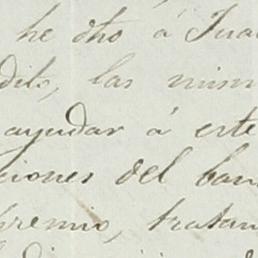 he dho á Jua
dito, las mism
ayudar á este
ciones del ban
premio, tratan